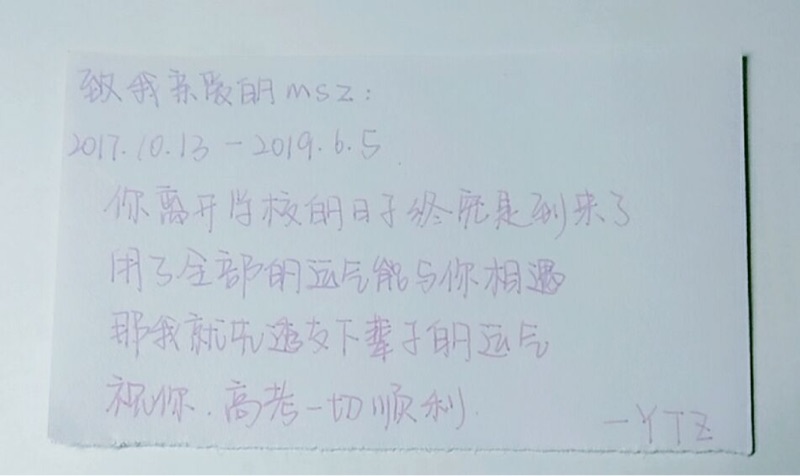 致我亲爱的msz:
2017.10.13-2019.6.5
你离开学校的日子终究是到来了
用了全部的运气能与你相遇
那我就先透支下辈子的运气
祝你.高考一切顺利.
—YTZ